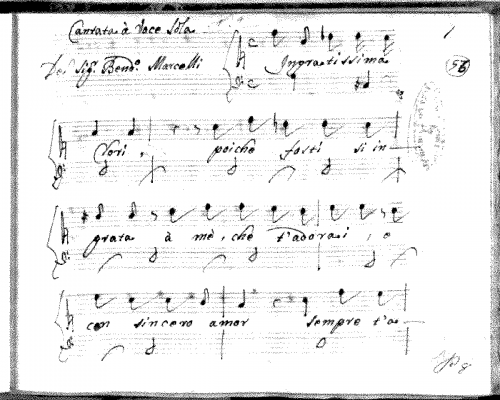 Cantata à Voce Sola
Del Sig.r Bend.o Marcelli
Ingratissima
1
56
Clori, poiche fosti si in
grata à mè, che t'adorai, e
con sincero amor sempre t'a